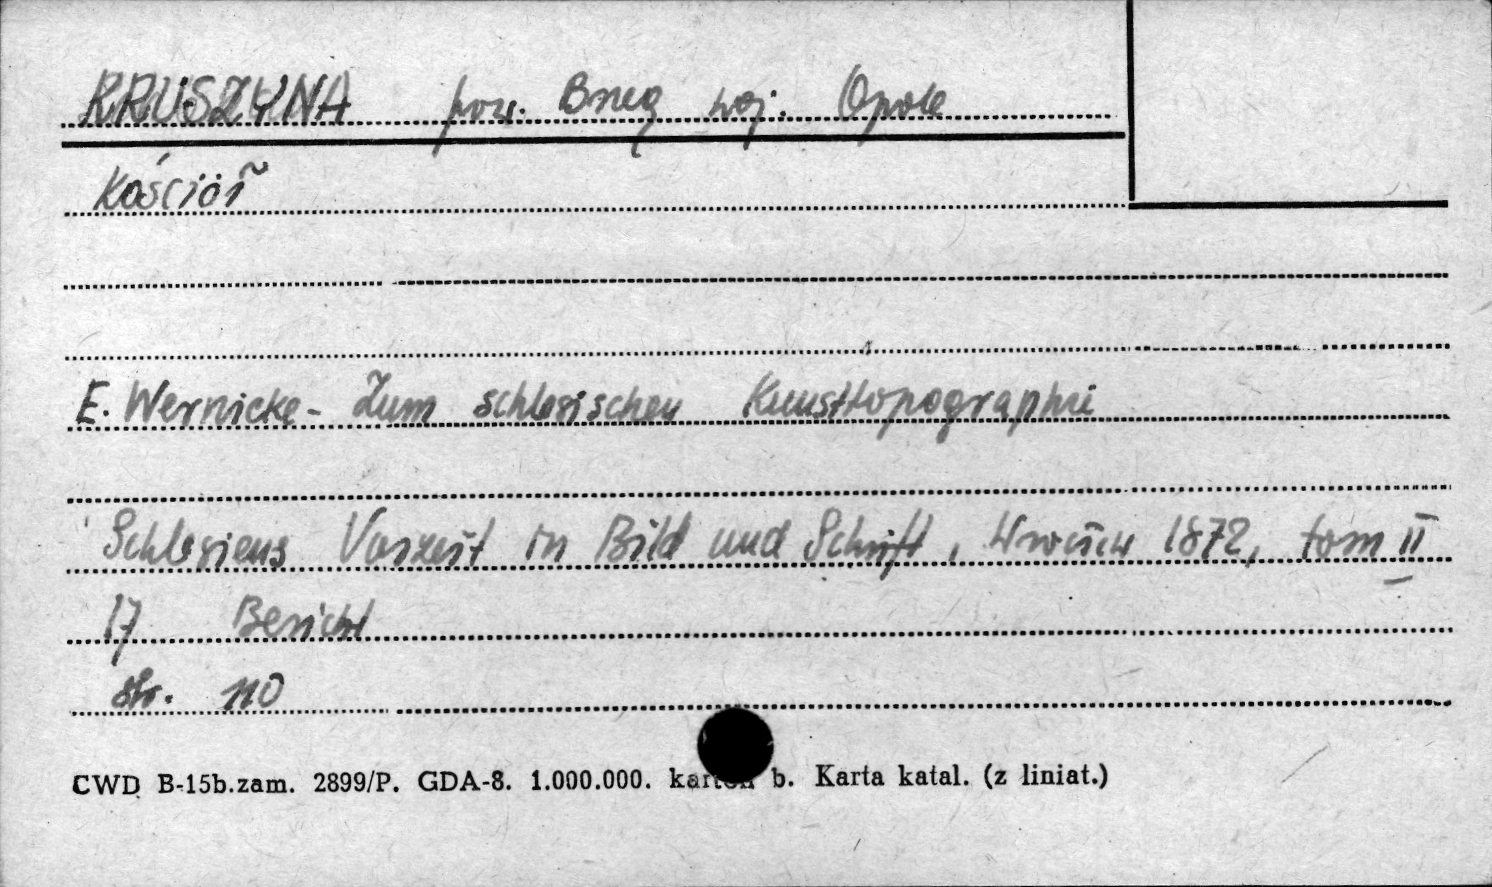 KRUSZYNA pow. Brzeg woj. Opole
Kościół
E. Wernicke - Zum schlesischen Kunsttopographie
Schlesiens Vorzeit in Bild und Schrift, Wrocław 1872, tom II
17 Bericht
str. 110
CWD B-15b.zam. 2899/P. GDA-8. 1.000.000. karton b. Karta katal. (z liniat.)